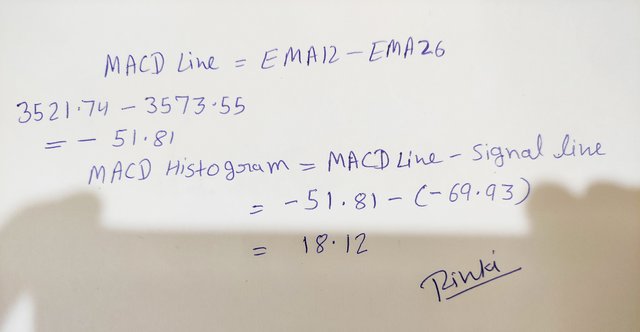 MACD Line = EMA12 - EMA26
3521.74 - 3573.55
= - 51.81
MACD Histogram = MACD Line - Signal line
= -51.81 - (-69.93)
= 18.12
Rinki